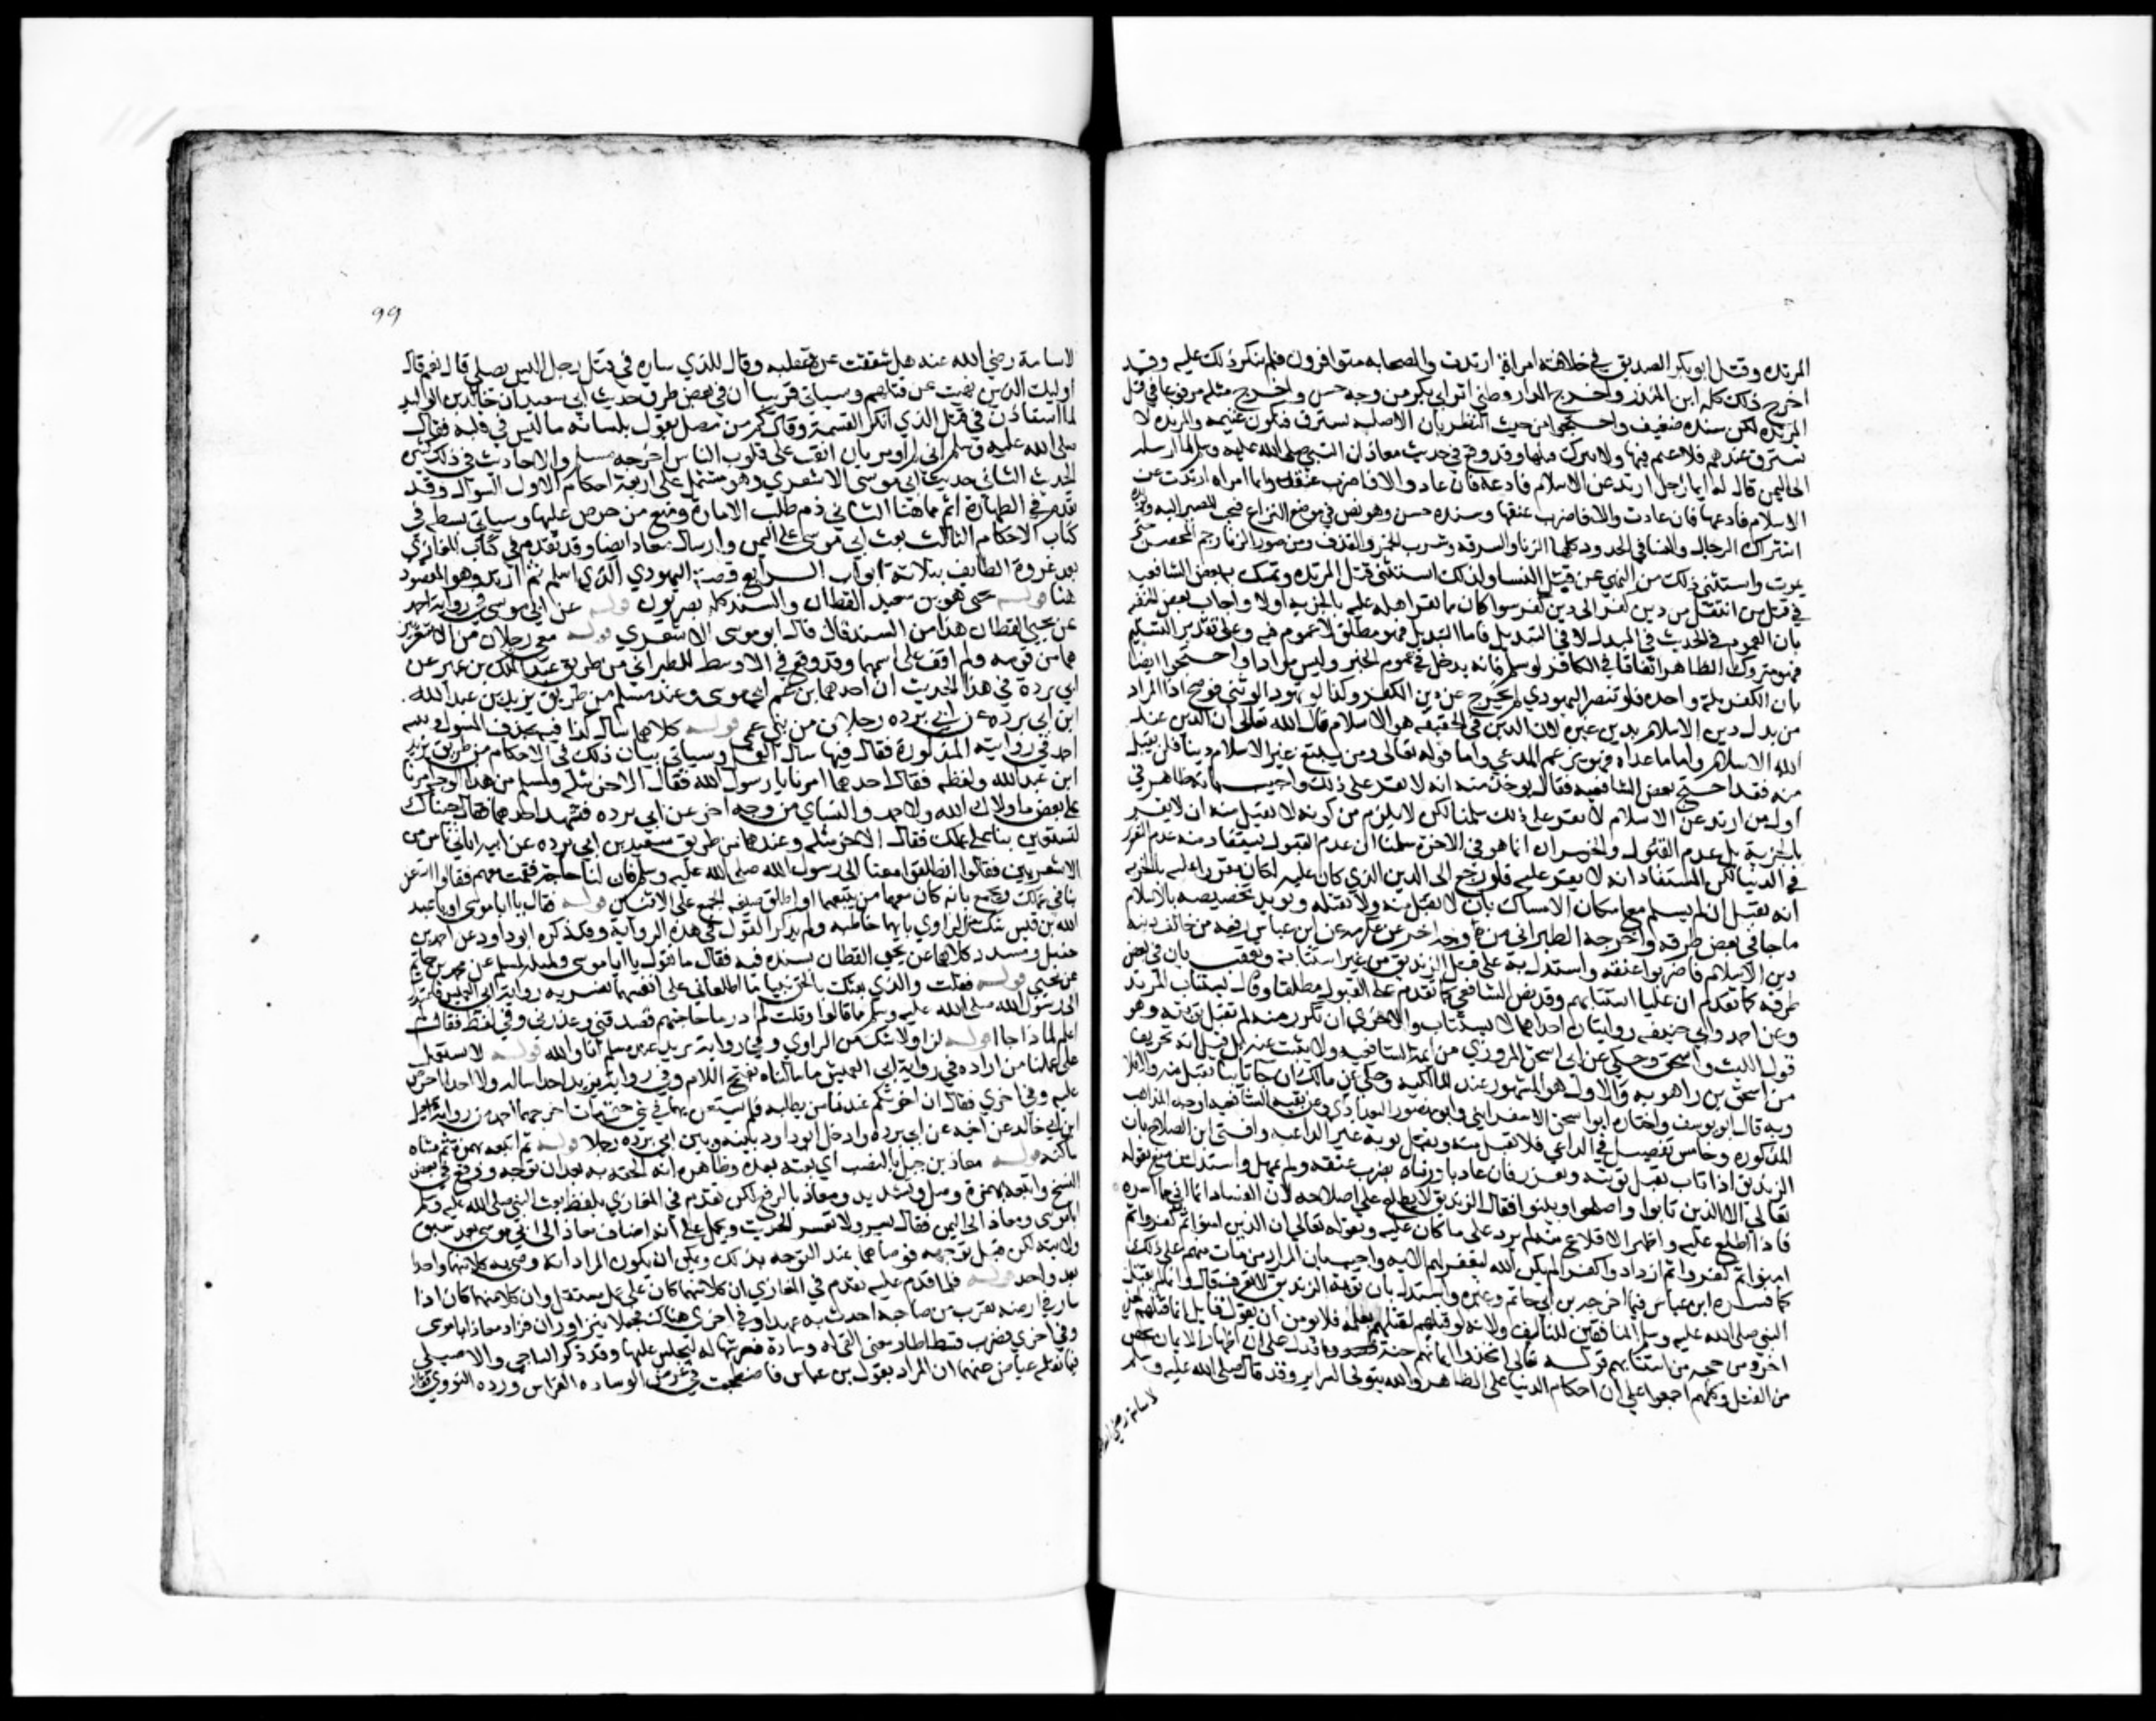 المرتده وقتل ابو بكر الصديق في خلافته امراة ارتدت والصحابه متوافرون فلم ينكر ذلك عليه وقد
اخرج ذلك كله ابن المنذر واخرج الدار وطني اثر ابي بكر من وجه حسن واخرج مثله مرفوعا في قتل
المرتده لكن سنده ضعيف واحتجوا من حيث النظر بان الاصليه تسترق فتكون غنيمه والمرتده لا
تسترق عندهم فلا غنم فيها ولا يترك قتلها وقد وقع في حديث معاذ ان النبي صلى الله عليه وسلم لما ارسله
الى اليمن قال له ايما رجل ارتد عن الاسلام فادعه فان عاد والا فاضرب عنقه وايما امراه ارتدت عن
الاسلام فادعها فان عادت والا فاضرب عنقها وسنده حسن وهو نص في موضع النزاع فيجب المصير اليه
اشتراك الرجال والنسا في الحدود كلها الزنا والسرقه وشرب الخمر والقذف ومن صور الزنا رجم المحصن حتى
يموت واستثنى ذلك من النهي عن قتل النسا ولذلك استثنى قتل المرتده وتمسك به بعض الشافعيه
في قتل من انتقل من دين كفر الى دين كفر سوا كان ممن يقر اهله عليه بالجزيه اولا واجاب بعض الحنفيه
بان العموم في الحديث في المبدل لا في التبديل فاما التبديل فهو مطلق لا عموم فيه وعلى تقدير التسليم
فهو متروك الظاهر اتفاقا في الكافر لو اسلم فانه يدخل في عموم الخبر وليس مرادا واحتجوا ايضا
بان الكفر ملة واحده فلو تنصر اليهودي لم يخرج عن دين الكفر وكذا لو تهود الوثني فوضح ان المراد
من بدل دين الاسلام بدين غيره لان الدين في الحقيقه هو الاسلام قال الله تعالى ان الدين عند
الله الاسلام واما ما عداه فهو بزعم المدعي واما قوله تعالى ومن يبتغ غير الاسلام دينا فلن يقبل
منه فقد احتج به بعض الشافعيه فقال يوخذ منه انه لا يقر على ذلك واجيب بانه ظاهر في
ان من ارتد عن الاسلام لا يقر على ذلك سلمنا لكن لا يلزم من كونه لا يقبل منه ان لا يقر
بالجزية بل عدم القبول والخسران انما هو في الاخرة سلمنا ان عدم القبول يستفاد منه عدم التقرير
في الدنيا لكن المستفاد انه لا يقر عليه فلو رجع الى الدين الذي كان عليه لكان يقر عليه بالجزيه
انه يقتل ان لم يسلم مع امكان الامساك بان لا نقبل منه ولا نقتله ويويد تخصيصه بالاسلام
ما جا في بعض طرقه واخرجه الطبراني من وجه اخر عن عكرمه عن ابن عباس رفعه من خالف دينه
دين الاسلام فاضربوا عنقه واستدل به على قتل الزنديق من غير استتابة وتعقب بان في بعض
طرقه كما تقدم ان عليا استتابهم وقد نص الشافعي كما تقدم على القبول مطلقا وقال يستتاب المرتد
وعن احمد وابي حنيفه روايتان احداهما لا يستتاب والاخرى ان تكرر منه لم تقبل توبته وهو
قول الليث واسحق وحكي عن ابي اسحق المروزي من ايمة الشافعيه ولا يثبت عنه بل قيل انه تحريف
من اسحق بن راهويه والاول هو المشهور عند المالكيه وحكي عن مالك ان جا تايبا يقبل منه والا فلا
وبه قال ابو يوسف واختاره ابو اسحق الاسفرايني وابو منصور البغدادي وعن بقيه الشافعيه اوجه المذاهب
المذكوره وخامس تفصيل في الداعي فلا تقبل منه وتقبل توبة غير الداعيه وافتى ابن الصلاح بان
الزنديق اذا تاب تقبل توبته ويعزر فان عاد بادرناه بضرب عنقه ولم يمهل واستدل من منع بقوله
تعالى الا الذين تابوا واصلحوا وبينوا فقال الزنديق لا يطلع على اصلاحه لان الفساد انما اتى مما اسره
فاذا اطلع عليه واظهر الاقلاع عنه لم يزد على ما كان عليه وبقوله تعالى ان الذين امنوا ثم كفروا ثم
امنوا ثم كفروا ثم ازدادوا كفرا لم يكن الله ليغفر لهم الايه واجيب بان المراد من مات منهم على ذلك
كما فسره ابن عباس فيما اخرجه بن ابي حاتم وغيره واستدل بان توبة الزنديق لا تعرف قال وانما لم يقتل
النبي صلى الله عليه وسلم المنافقين للتاليف ولانه لو قتلهم لقتلهم بعلمه فلا يومن ان يقول قايل انما قتلهم لمعنى
اخر ومن حجه من استتابهم قوله تعالى اتخذوا ايمانهم جنة فدل على ان اظهار الايمان يحصن
من القتل وكلهم اجمعوا على ان احكام الدنيا على الظاهر والله يتولى السراير وقد قال صلى الله عليه وسلم
لاسامة رضي الله
٩٩
لاسامة رضي الله عنه هل شققت عن قلبه وقال للذي ساره في قتل رجل اليس يصلي قال نعم قال
اوليك الذين نهيت عن قتلهم وسياتي قريبا ان في بعض طرق حديث ابي سعيد ان خالد بن الوليد
لما استاذن في قتل الذي انكر القسمة وقال كم من مصل يقول بلسانه ما ليس في قلبه فقال
صلى الله عليه وسلم اني لم اومر بان انقب على قلوب الناس اخرجه مسلم والاحاديث في ذلك كثيره
الحديث الثاني حديث ابي موسى الاشعري وهو مشتمل على اربعة احكام الاول السواك وقد
تقدم في الطهارة اتم مما هنا الثاني ذم طلب الامارة ومنع من حرص عليها وسياتي بسطه في
كتاب الاحكام الثالث بعث ابي موسى على اليمن وارسال معاذ ايضا وقد تقدم في كتاب المغازي
بعد غزوة الطايف بثلاثة ابواب الرابع قصة اليهودي الذي اسلم ثم ارتد وهو المقصود
هنا قوله يحيى هو بن سعيد القطان والسند كله بصريون قوله عن ابي موسى في رواية احمد
عن يحيى القطان هذا من السند قال قال ابو موسى الاشعري قوله معي رجلان من الاشعريين
هما من قومه ولم اقف على اسمهما وقد وقع في الاوسط للطبراني من طريق عبد الملك بن عمير عن
ابي بردة في هذا الحديث ان احدهما بن عم ابي موسى وعند مسلم من طريق يزيد بن عبد الله
ابن ابي برده عن ابي برده رجلان من بني عمي قوله كلاهما سال كذا فيه بحذف المسول وبينه
احمد في روايته المذكورة فقال فيها سال العمل وسياتي بيان ذلك في الاحكام من طريق يزيد
ابن عبد الله ولفظه فقال احدهما امرنا يا رسول الله فقال الاخر مثله ولمسلم من هذا الوجه امرنا
على بعض ما ولاك الله ولاحمد والنساي من وجه اخر عن ابي برده فتشهد احدهما فقال جيناك
لتستعين بنا على عملك فقال الاخر مثله وعندهما من طريق سعيد بن ابي برده عن ابيه اتاني ناس من
الاشعريين فقالوا انطلق معنا الى رسول الله صلى الله عليه وسلم فان لنا حاجة فقمت معهم فقالوا استعن
بنا في عملك ويجمع بانه كان معهما من يتبعهما او اطلق صيغة الجمع على الاثنين قوله فقال يا ابا موسى او يا عبد
الله بن قيس شك من الراوي بايهما خاطبه ولم يذكر القول في هذه الرواية وقد ذكره ابو داود عن احمد بن
حنبل ومسدد كلاهما عن يحيى القطان بسنده فيه فقال ما تقول يا ابا موسى ومثله لمسلم عن محمد بن حاتم
عن يحيى قوله فقلت والذي بعثك بالحق نبيا ما اطلعاني على انفسهما يفسر به رواية ابي العميس فاعتذرت
الى رسول الله صلى الله عليه وسلم مما قالوا وقلت لم ادر ما حاجتهم فصدقني وعذرني وفي لفظ فقال لم
اعلم لماذا جاا قوله لن او لا شك من الراوي وفي رواية يزيد عند مسلم انا والله قوله لا نستعمل
على عملنا من اراده في رواية ابي العميس ما سالناه بفتح اللام وفي رواية يزيد احدا ساله ولا احدا حرص
عليه وفي اخرى فقال ان اخونكم عندنا من يطلبه فلم يستعن بهما في شي حتى مات اخرجهما احمد من رواية اسمعيل
ابن ابي خالد عن اخيه عن ابي برده وادخل ابو داود بينه وبين ابي برده رجلا قوله ثم اتبعه بهمزة ثم مثناه
ساكنه قوله معاذ بن جبل بالنصب اي بعثه بعده وظاهره انه الحقه به بعد ان توجه ووقع في بعض
النسخ واتبعه بهمزة وصل وتشديد ومعاذ بالرفع لكن تقدم في المغازي بلفظ بعث النبي صلى الله عليه وسلم
ابا موسى ومعاذا الى اليمن فقال يسرا ولا تعسرا الحديث ويحمل على انه اضاف معاذا الى ابي موسى بعد سبق
ولايته لكن قبل توجهه فوصاهما عند التوجه بذلك ويمكن ان يكون المراد انه وصى كلا منهما واحدا
بعد واحد قوله فلما قدم عليه تقدم في المغازي ان كلا منهما كان على عمل مستقل وان كلا منهما كان اذا
سار في ارضه بقرب من صاحبه احدث به عهدا وفي اخرى هناك فجعلا يتزاوران فزار معاذ ابا موسى
وفي اخرى فضرب فسطاطا ومعنى القى له وسادة فرشها له ليجلس عليها وقد ذكر الباجي والاصيلي
فيما نقله عياض عنهما ان المراد بقول بن عباس فاضطجعت في عرض الوساده الفراش ورده النووي فقال